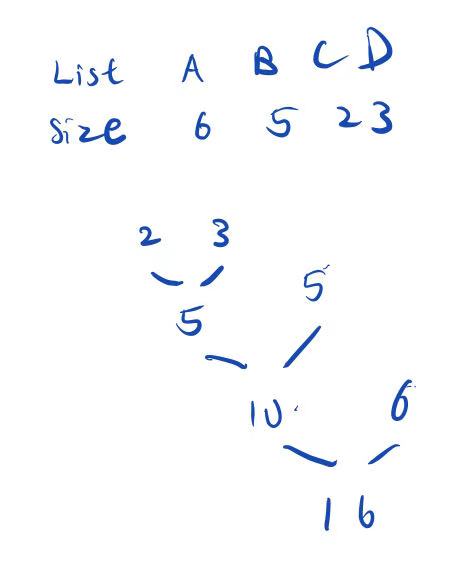 List A B C D
Size 6 5 2 3
2 3
5
5
10
6
16